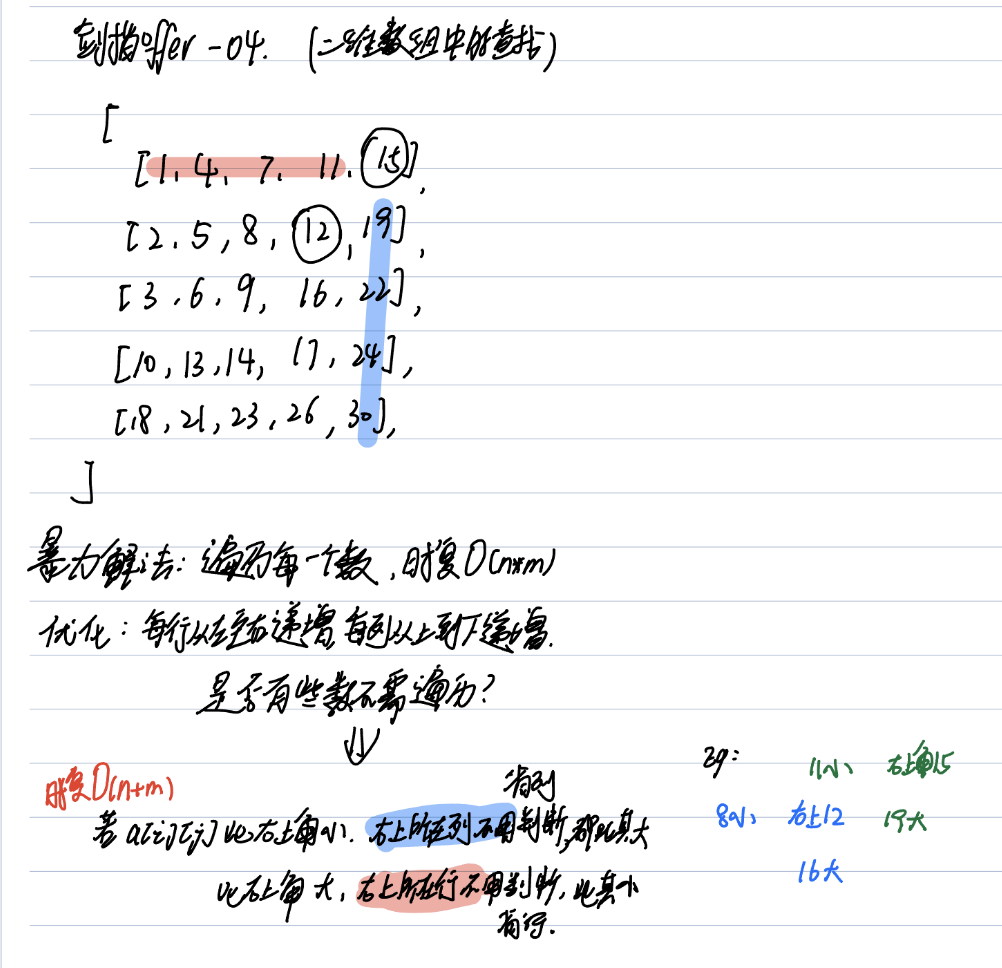 剑指offer-04. (二维数组中的查找)
[
[1, 4, 7, 11, 15],
[2, 5, 8, 12, 19],
[3, 6, 9, 16, 22],
[10, 13, 14, 17, 24],
[18, 21, 23, 26, 30],
]
暴力解法: 遍历每一个数, 时复O(n*m)
优化: 每行从左至右递增, 每列从上到下递增.
是否有些数不需遍历?
⇓
时复O(n+m)
省列
若a[i][j]比右上角小. 右上所在列不用判断, 都比其大
比右上角大, 右上所在行不用判断, 比其小
省行.
eg:
11小 右上角15
8小 右上12 19大
16大